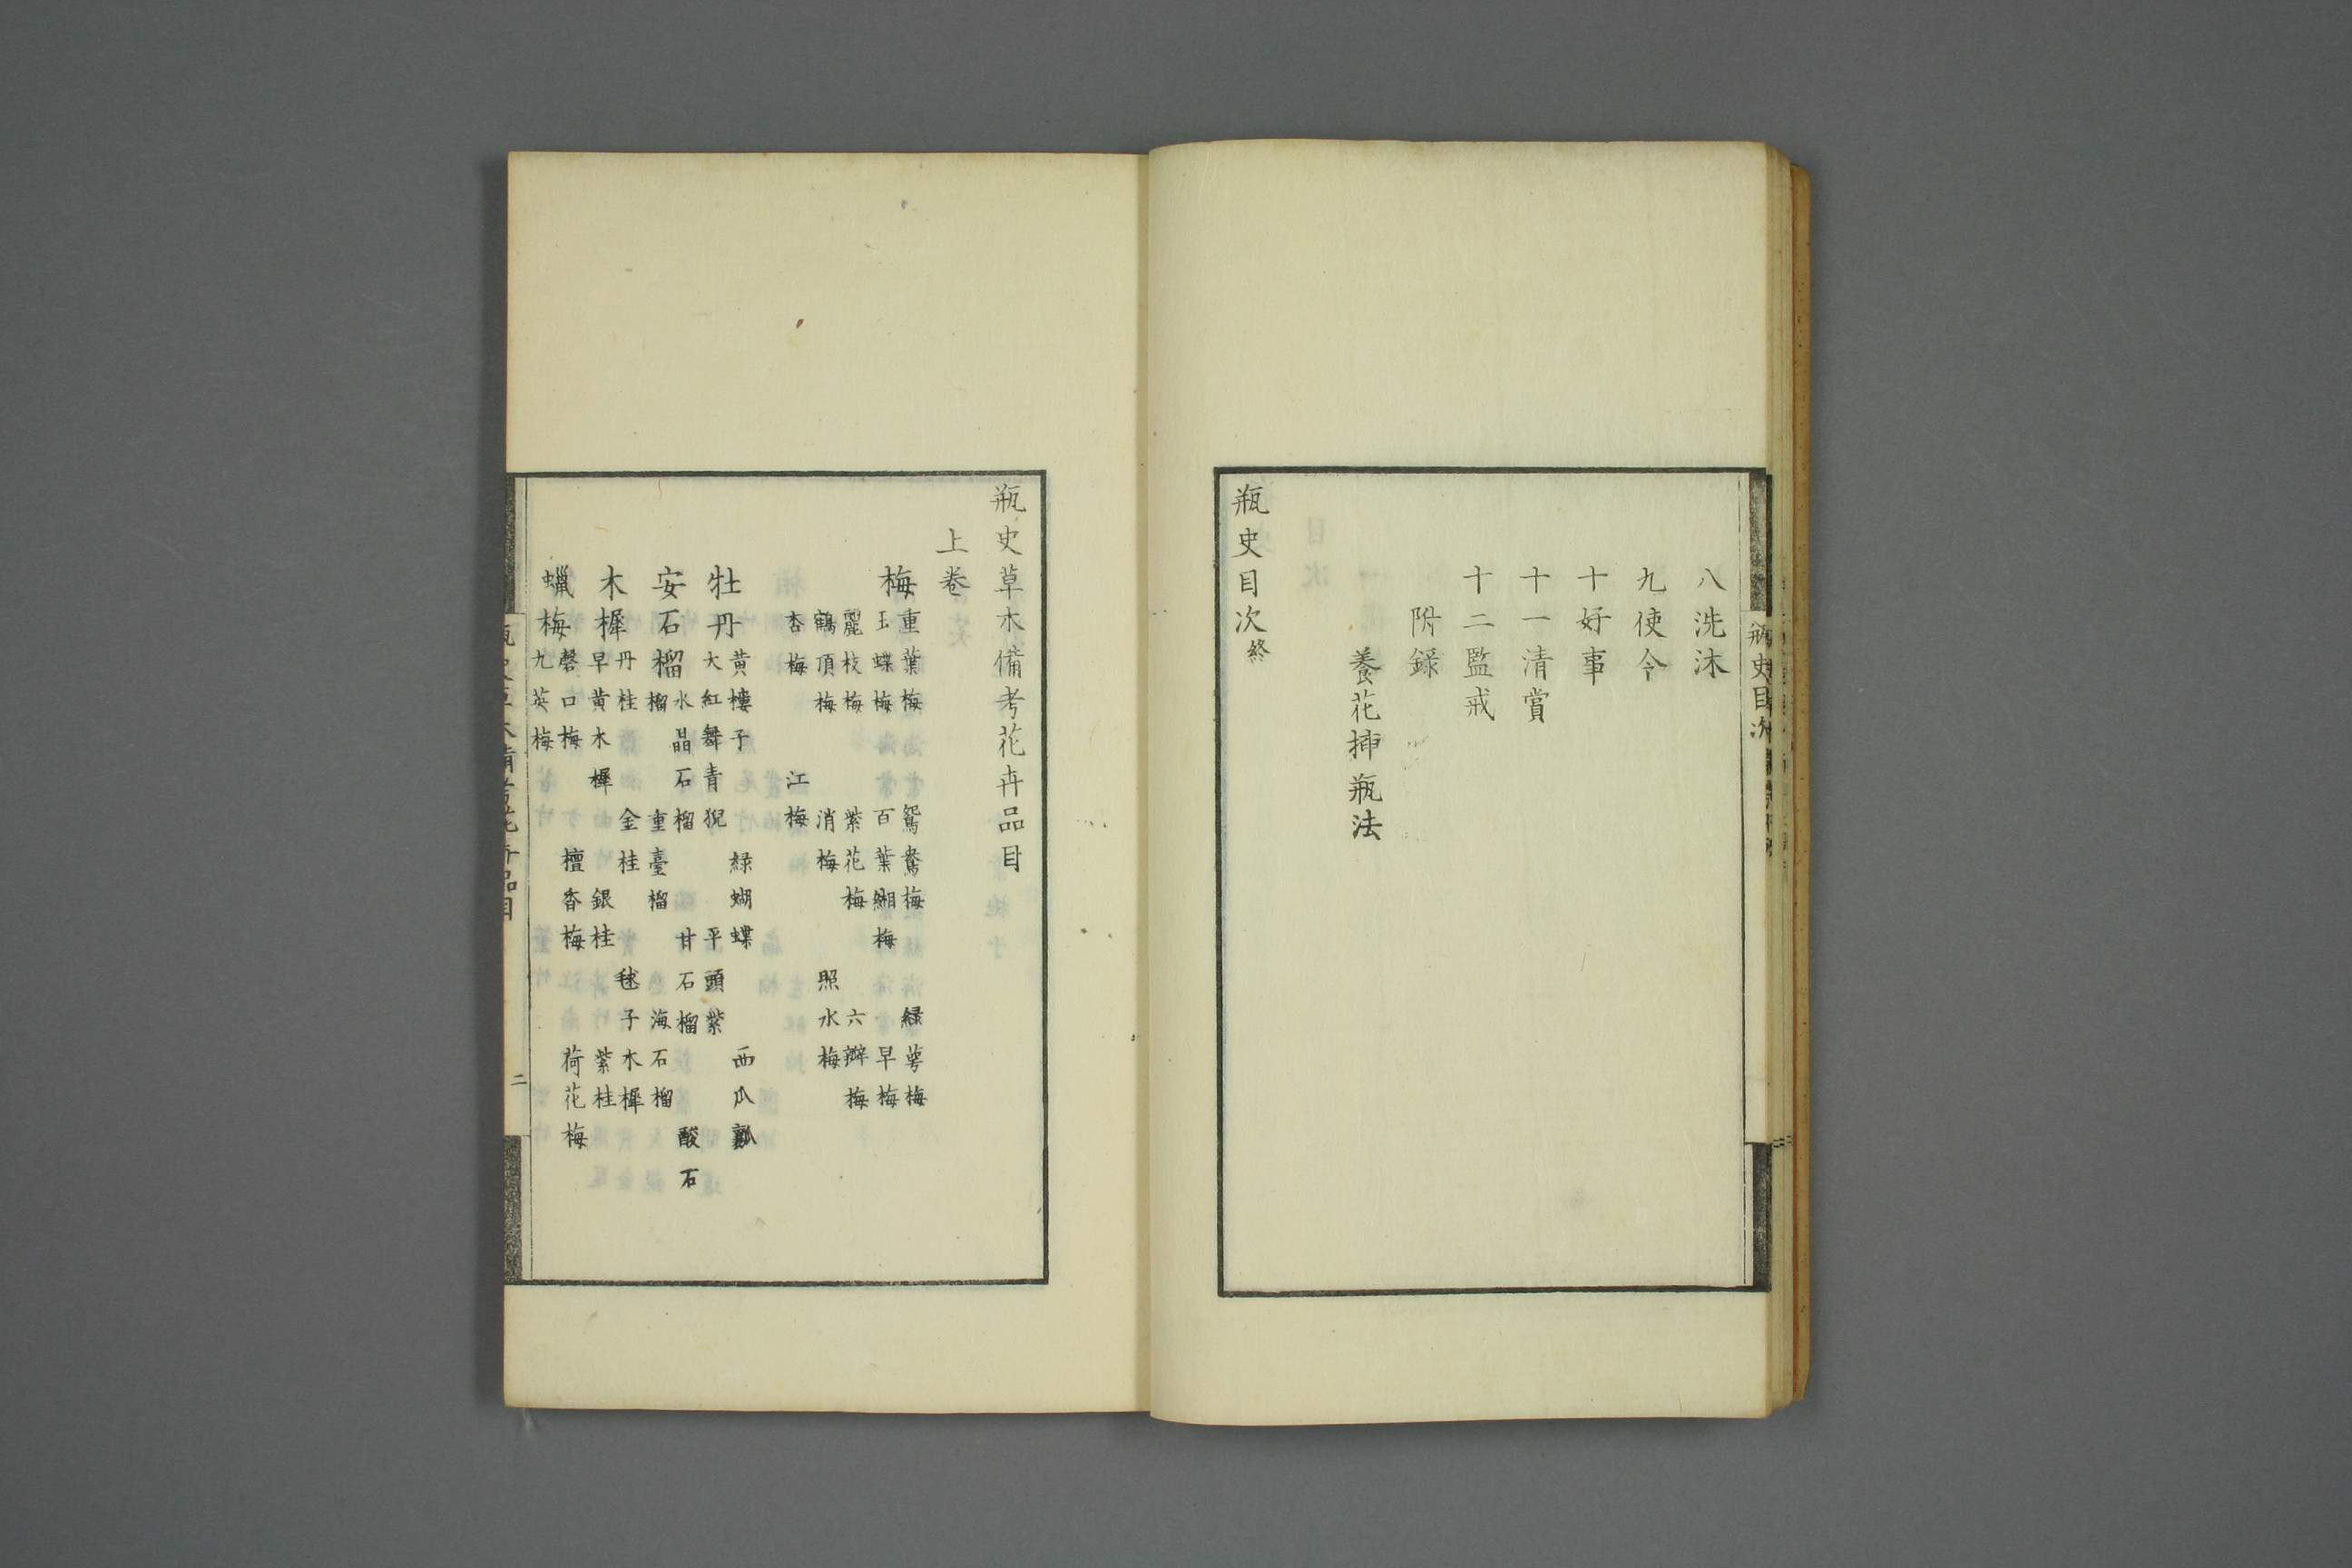 八洗沐
九使令
十好事
十一清賞
十二監戒
附録
養花挿瓶法
瓶史目次終
瓶史目次
瓶史草木備考花卉品目
上卷
梅
重葉梅 鴛鴦梅 緑萼梅
玉蝶梅 百葉緗梅 早梅
麗枝梅 紫花梅 六瓣梅
鶴頂梅 消梅 照水梅
杏梅 江梅
牡丹
黄樓子 緑蝴蝶 西瓜瓤
大紅舞青猊 平頭紫
安石榴
水晶石榴 甘石榴 酸石
榴 重臺榴 海石榴
木樨
丹桂 金桂 毬子木樨
早黄木樨 銀桂 紫桂
蠟梅
磬口梅 檀香梅 荷花梅
九英梅
二